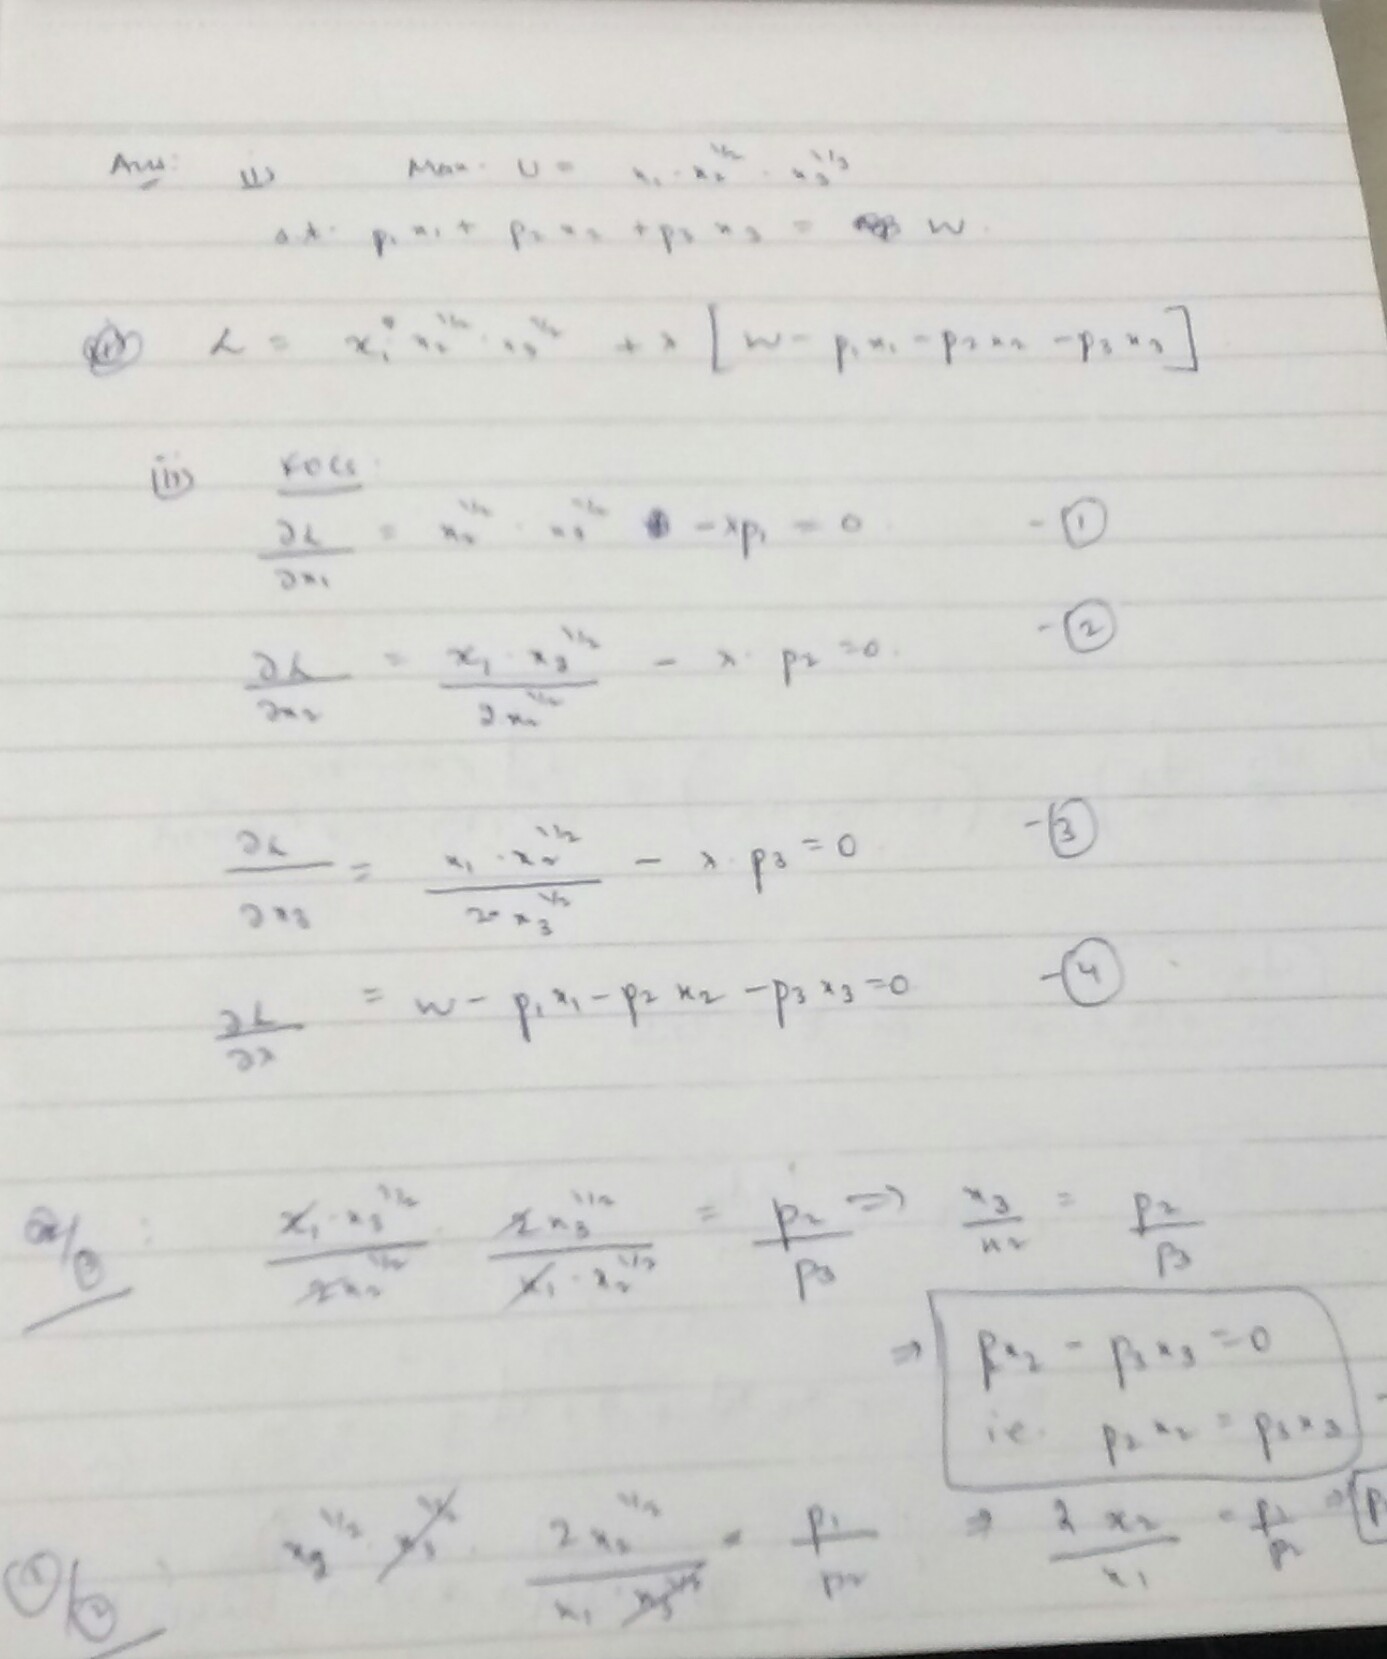 Ans: (i) Max. U = x₁ · x₂^1/2 · x₃^1/3
s.t. p₁x₁ + p₂x₂ + p₃x₃ = W.
(ii) L = x₁ x₂^1/2 · x₃^1/2 + λ [ W - p₁x₁ - p₂x₂ - p₃x₃ ]
(iii) FOCs:
∂L/∂x₁ = x₂^1/2 · x₃^1/2 - λp₁ = 0 - ①
∂L/∂x₂ = x₁ · x₃^1/2 / 2x₂^1/2 - λ · p₂ = 0. - ②
∂L/∂x₃ = x₁ · x₂^1/2 / 2 x₃^1/2 - λ · p₃ = 0 - ③
∂L/∂λ = W - p₁x₁ - p₂x₂ - p₃x₃ = 0 - ④
②/③ : x₁ · x₃^1/2 / 2x₂^1/2 · 2x₃^1/2 / x₁ · x₂^1/2 = p₂/p₃ ⇒ x₃/x₂ = p₂/p₃
⇒ p₂x₂ - p₃x₃ = 0
ie. p₂x₂ = p₃x₃
①/② : x₂^1/2 · x₃^1/2 · 2x₂^1/2 / x₁ · x₃^1/2 = p₁/p₂ ⇒ 2x₂/x₁ = p₁/p₂ ⇒ [p